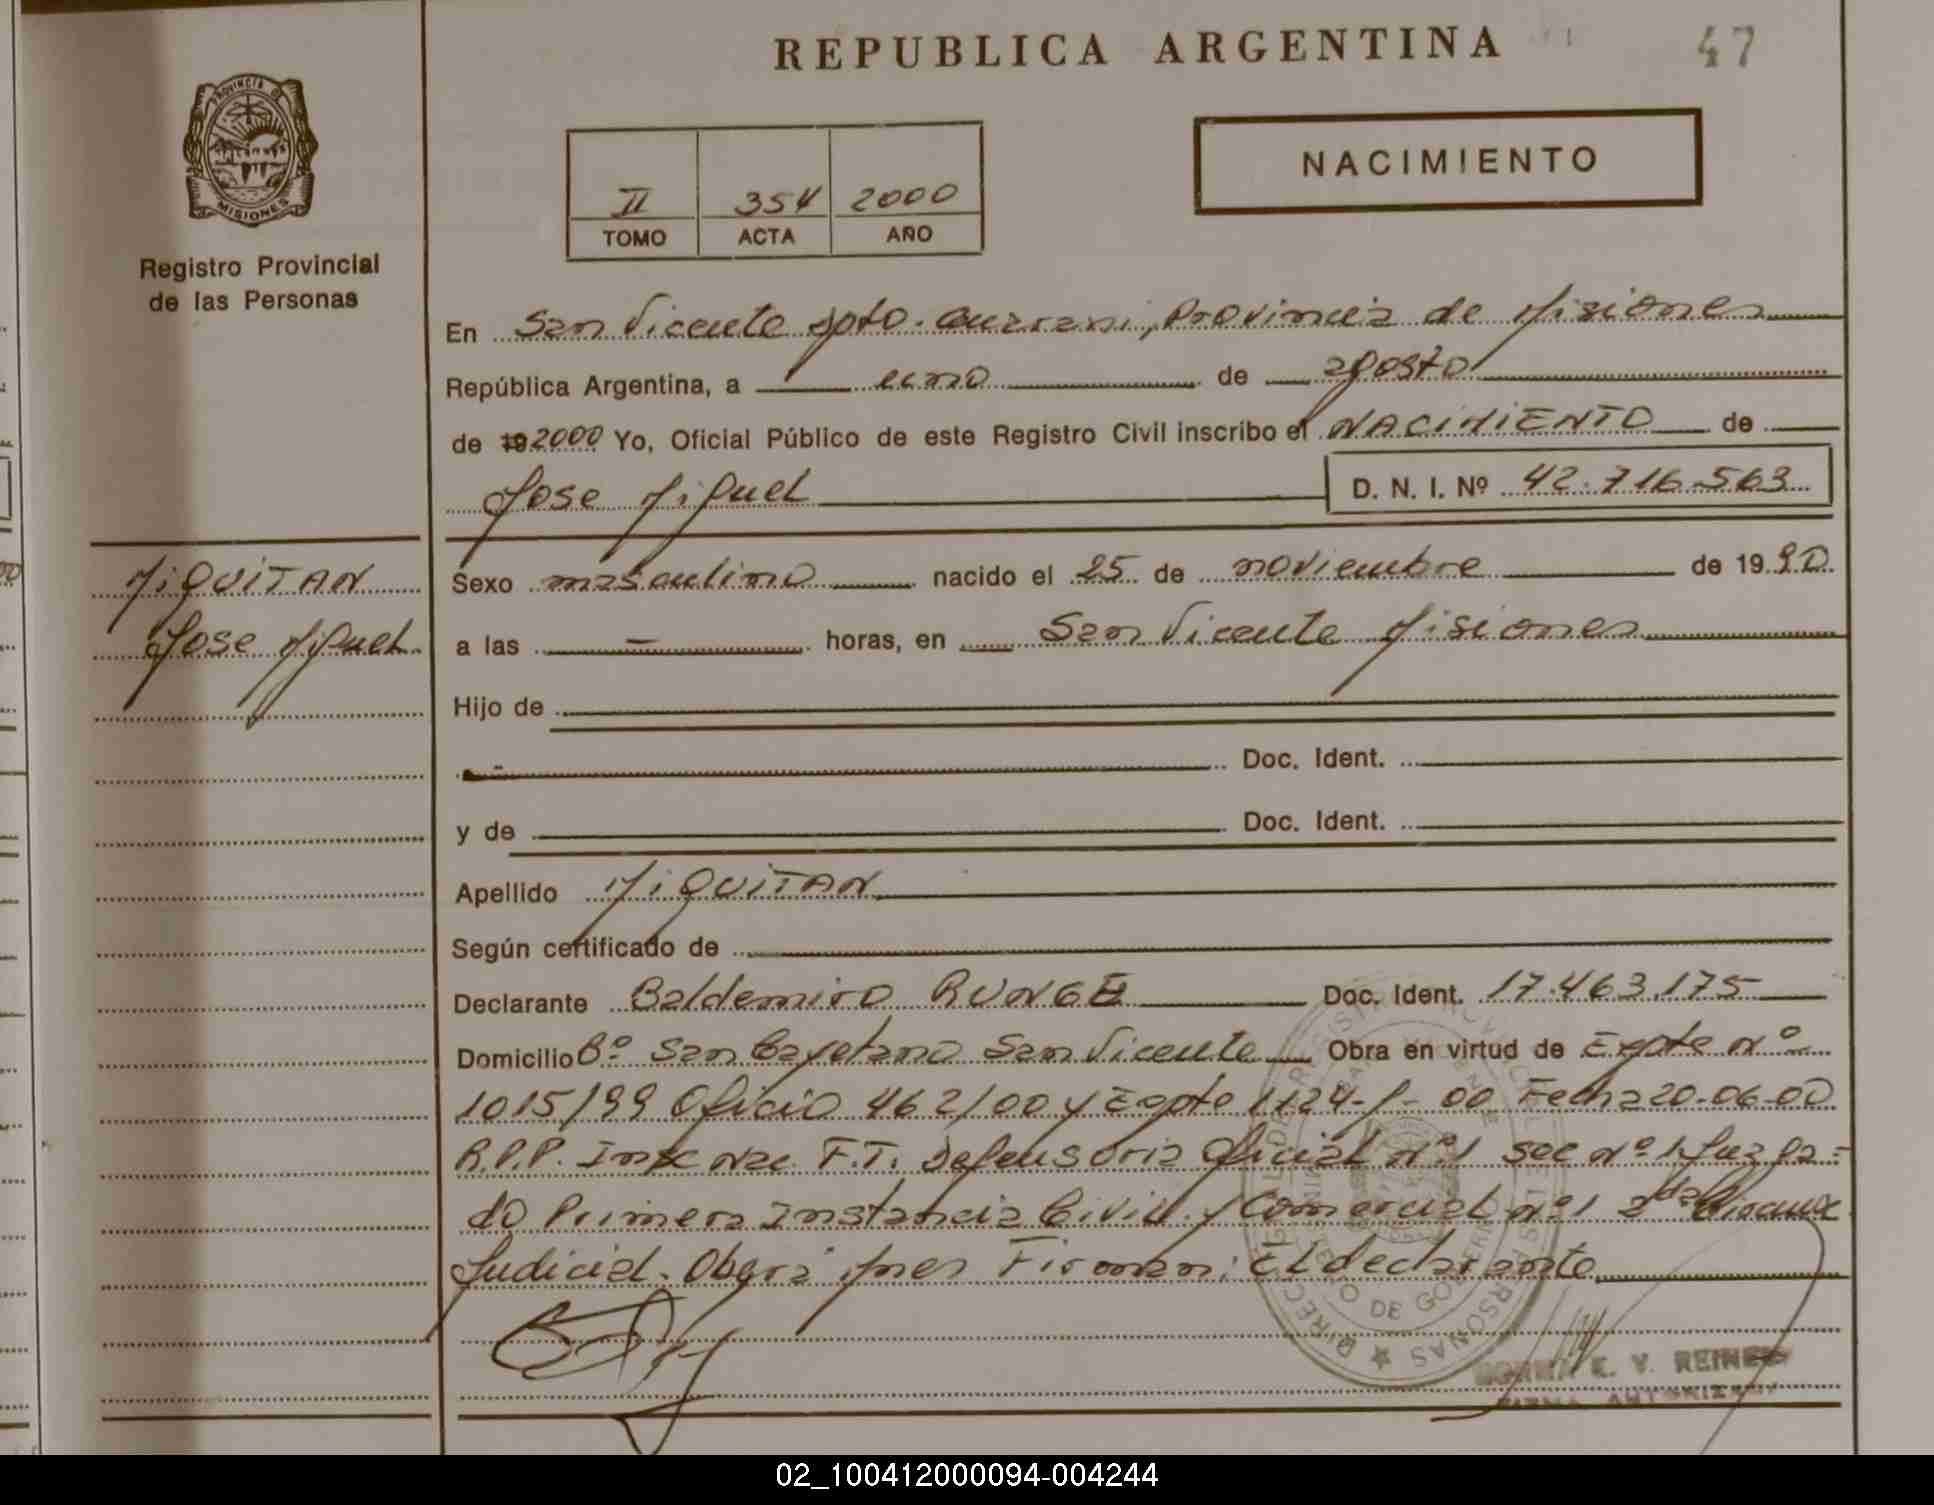 REPUBLICA ARGENTINA
47
PROVINCIA D
MISIONES
Registro Provincial
de las Personas
II 354 2000
TOMO ACTA AÑO
NACIMIENTO
En San Vicente Dpto. Guarani, Provincia de Misiones
República Argentina, a uno de agosto
de 19 2000 Yo, Oficial Público de este Registro Civil inscribo el NACIMIENTO de
Jose Miguel D. N. I. Nº 42.716.563
MIQUITAN
Jose Miguel
Sexo masculino nacido el 25 de noviembre de 19 90
a las — horas, en San Vicente Misiones
Hijo de
Doc. Ident.
y de Doc. Ident.
Apellido MIQUITAN
Según certificado de
Declarante Baldemiro RUNGE Doc. Ident. 17.463.175
Domicilio Bº San Cayetano San Vicente Obra en virtud de Expte Nº
1015/99 Oficio 462/00 y Expte 1124- - 00 Fecha 20-06-00
R.P.P. F.T. Defensoria Oficial Nº1 Sec Nº 1 Juzga-
do Primera Instancia Civil y Comercial Nº1 2da
Judicial. Firman: El declarante
E. V. REINE
02_100412000094-004244